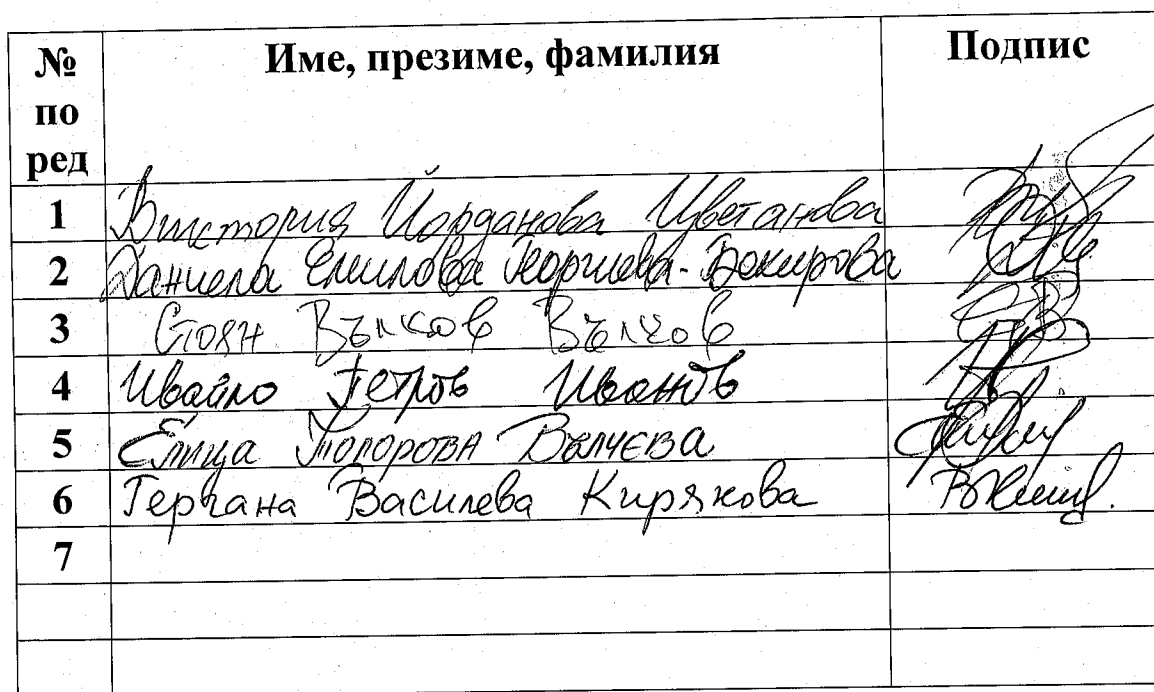 № по ред Име, презиме, фамилия Подпис
1 Виктория Йорданова Цветанова
2 Даниела Емилова Георгиева-Бекирова
3 Стоян Вълков Вълков
4 Ивайло Петров Иванов
5 Елица Тодорова Вълчева
6 Гергана Василева Кирякова
7